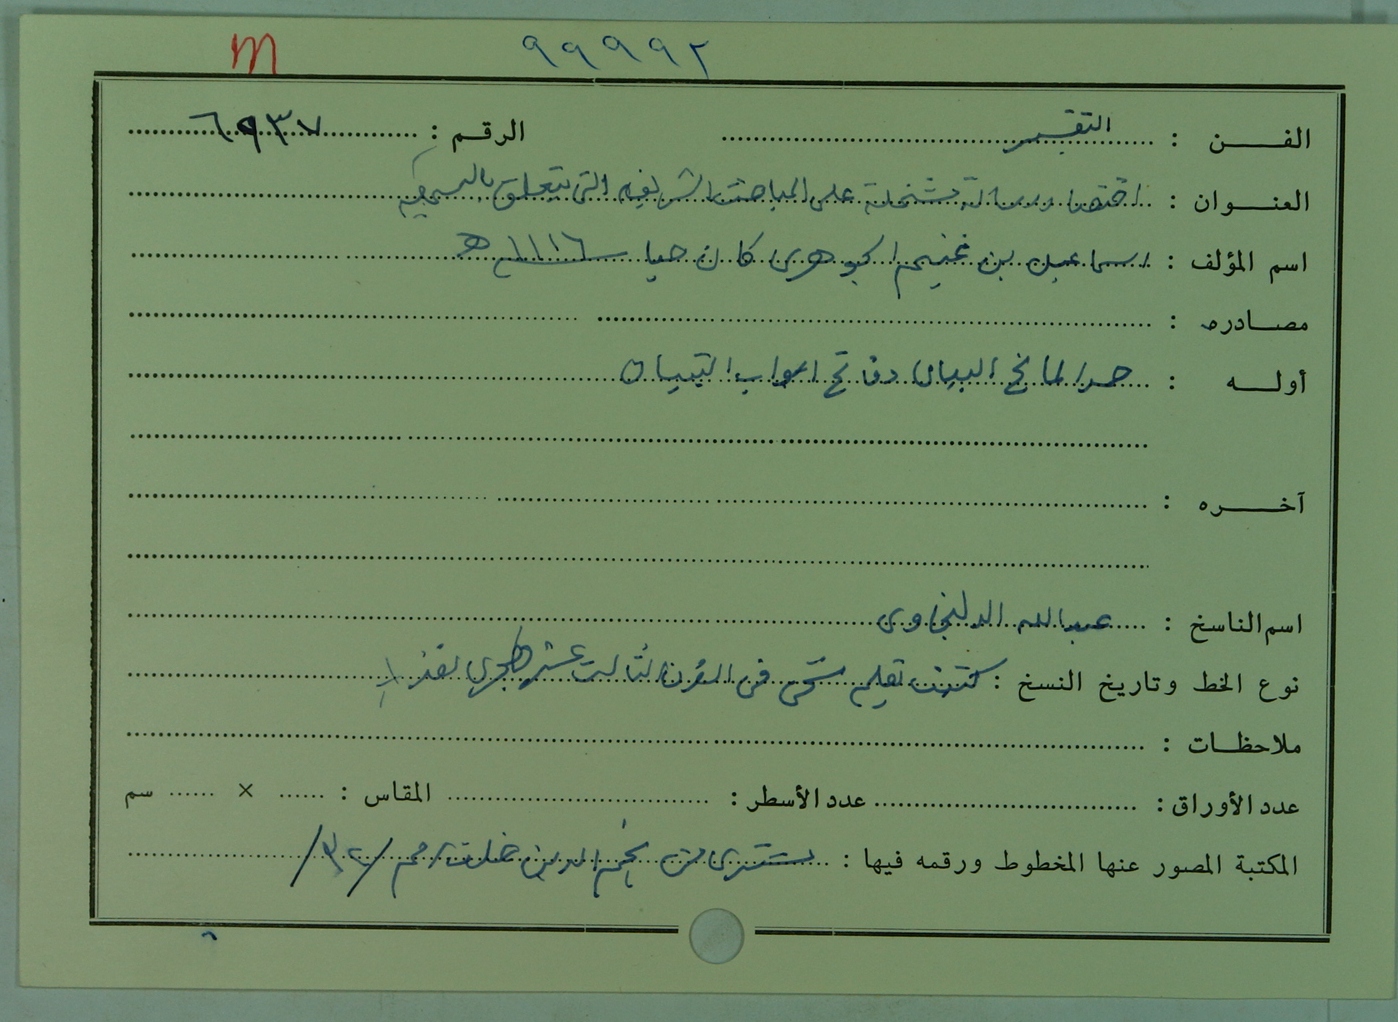 m ٩٩٩٩٢
الفن : التفسير الرقم : ٦٩٣٧
العنوان : رسالة مشتملة على المباحث الشريفة التى تتعلق بالبسملة
اسم المؤلف : اسماعيل بن غنيم الجوهرى كان حيا ١١١٦ هـ
مصادره :
أوله : حمدا لمانح البيان وفاتح ابواب التبيان
آخره :
اسم الناسخ : عبدالله الدلنجاوى
نوع الخط وتاريخ النسخ : كتبت بقلم نسخى فى القرن الثالث عشر الهجرى
ملاحظات :
عدد الأوراق : عدد الأسطر : المقاس : × سم
المكتبة المصور عنها المخطوط ورقمه فيها : مشترى من نجم الدين